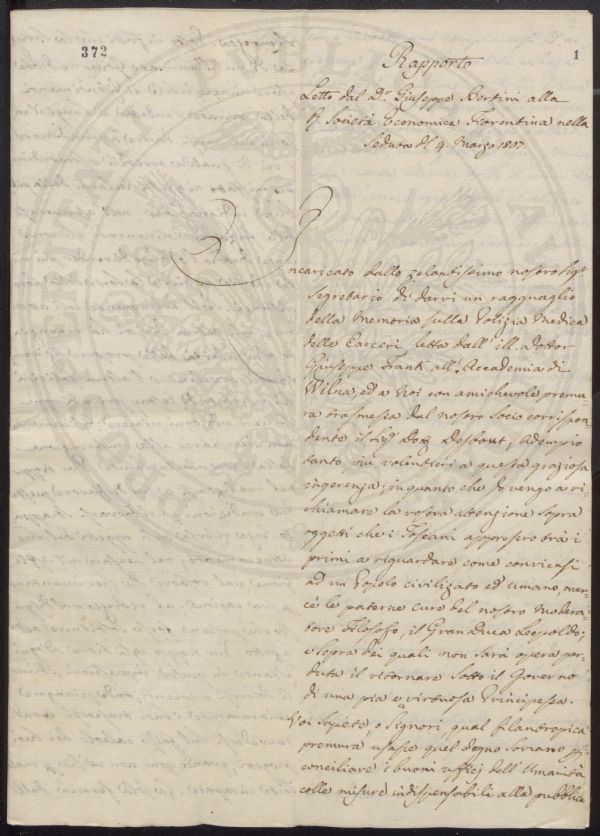 372
1
Rapporto
Letto dal Dr. Giuseppe Bertini alla
R. Società Economica Fiorentina nella
Seduta de' 4. Marzo 1807.
Incaricato dallo zelantissimo nostro Sigr.
Segretario di darvi un ragguaglio
della Memoria sulla Polizia Medica
delle Carceri letta dall' ill. Dottor
Giuseppe Frank all' Accademia di
Wilna, ed a Noi con amichevole premu
ra trasmessa dal nostro Socio corrispon-
dente il Sigr. Desbout, adempio
tanto più volentieri a questa graziosa
ingerenza, in quanto che Io vengo a ri
chiamare la vostra attenzione sopra
oggetti che i Toscani appresero trà i
primi a riguardare come conviensi
ad un Popolo civilizato ed umano, mer-
cè le paterne cure del nostro Modera-
tore Filosofo, il Gran Duca Leopoldo;
e sopra dei quali non sarà opera per-
duta il ritornare sotto il Governo
di una pia e virtuosa Principessa.
Voi sapete, o Signori, qual filantropica
premura usasse quel degno Sovrano per
conciliare i buoni ufficj dell' Umanità
colle misure indispensabili alla pubblica